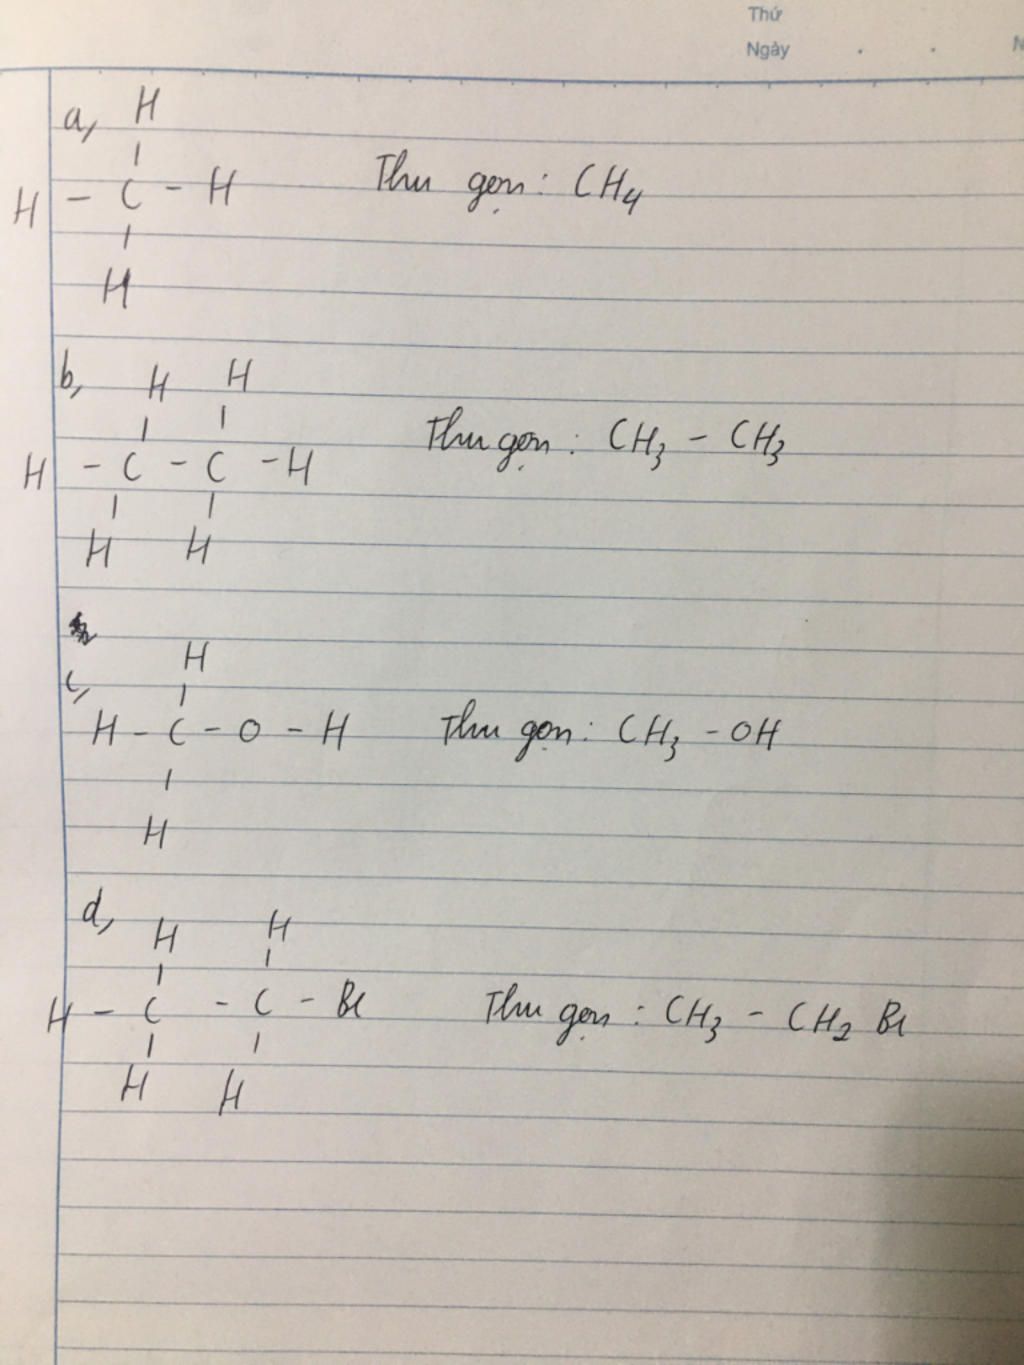 Thứ
Ngày . .
a, H
|
H - C - H Thu gọn : CH4
|
H
b, H H
| |
H - C - C - H Thu gọn : CH3 - CH3
| |
H H
c, H
|
H - C - O - H Thu gọn : CH3 - OH
|
H
d, H H
| |
H - C - C - Br Thu gọn : CH3 - CH2 Br
| |
H H